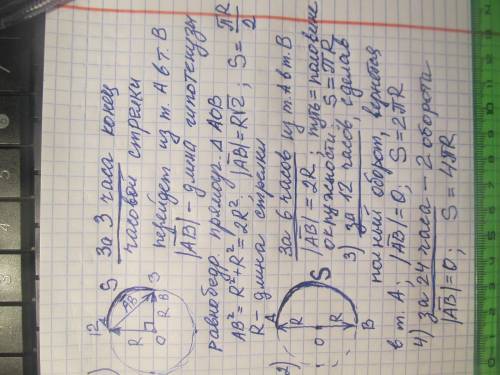 1)
12
A
S
3
B
AB
R
R
O
За 3 часа конец
часовой стрелки
перейдет из т. А в т. В
|AB| - длина гипотенузы
равнобедр. прямоуг. △ AOB
AB² = R² + R² = 2R²; |AB| = R√2; S = πR/2
R - длина стрелки
2)
A
S
R
O
R
B
За 6 часов из т. А в т. В
|AB| = 2R; путь = половине
окружности. S = πR
3) за 12 часов, сделав
полный оборот, вернется
в т. А; |AB| = 0; S = 2πR
4) за 24 часа - 2 оборота
|AB| = 0; S = 4πR